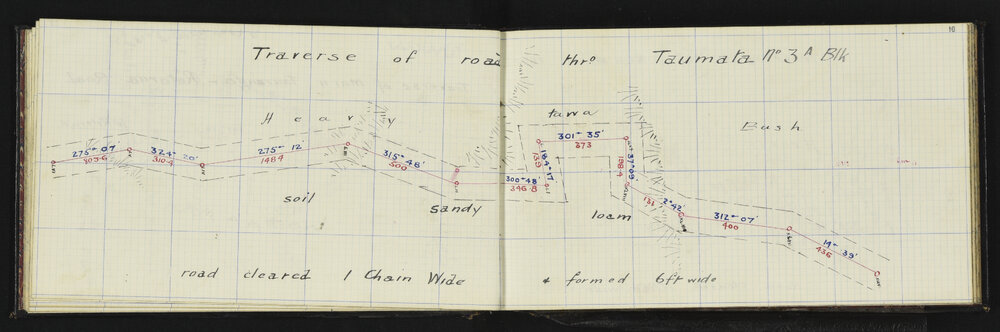 10
Traverse of road thro Taumata No 3A Blk
Heavy tawa Bush
275° 07'
303.6
324° 20'
310.4
275° 12'
1484
315° 48'
500
300° 48'
346.8
184° 17'
139
301° 35'
373
37° 09'
188.4
2° 42'
131
312° 07'
400
14° 39'
436
soil sandy loam
road cleared 1 Chain Wide & formed 6ft wide